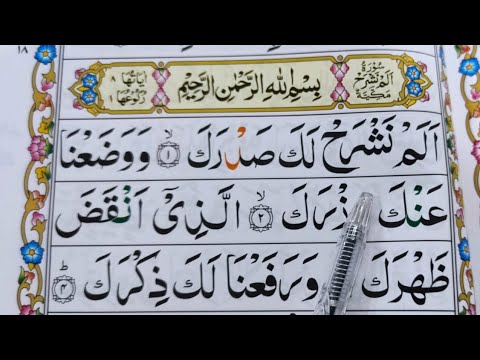 ١٨
سُوْرَةُ اَلَمْ نَشْرَحْ مَكِّيَّةٌ بِسْمِ اللّٰهِ الرَّحْمٰنِ الرَّحِيْمِ اٰيَاتُهَا ٨ رُكُوْعُهَا
اَلَمْ نَشْرَحْ لَكَ صَدْرَكَ ۙ﴿١﴾ وَوَضَعْنَا
عَنْكَ زْرَكَ ۙ﴿٢﴾ الَّذِىْۤ اَنْقَضَ
ظَهْرَكَ وَرَفَعْنَا لَكَ ذِكْرَكَ ؕ﴿٤﴾